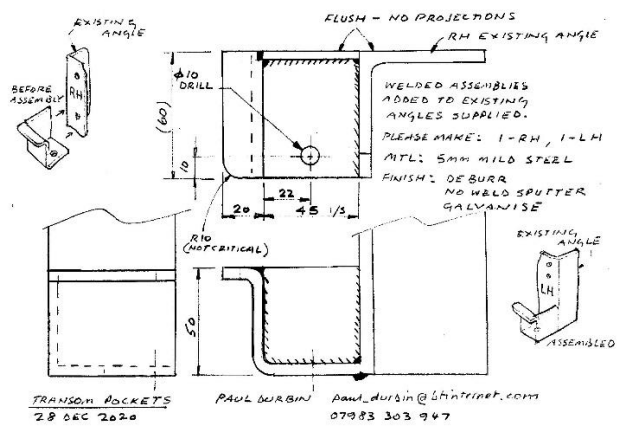 EXISTING
ANGLE
FLUSH - NO PROJECTIONS
RH EXISTING ANGLE
BEFORE
ASSEMBLY
RH
Ø10
DRILL
(60)
10
WELDED ASSEMBLIES
ADDED TO EXISTING
ANGLES SUPPLIED.
PLEASE MAKE: 1-RH, 1-LH
MTL: 5MM MILD STEEL
FINISH: DEBURR
NO WELD SPUTTER
GALVANISE
22
20
45 I/S
R10
(NOT CRITICAL)
50
EXISTING
ANGLE
LH
ASSEMBLED
TRANSOM POCKETS
28 DEC 2020
PAUL DURBIN
paul_durbin@btinternet.com
07983 303 947